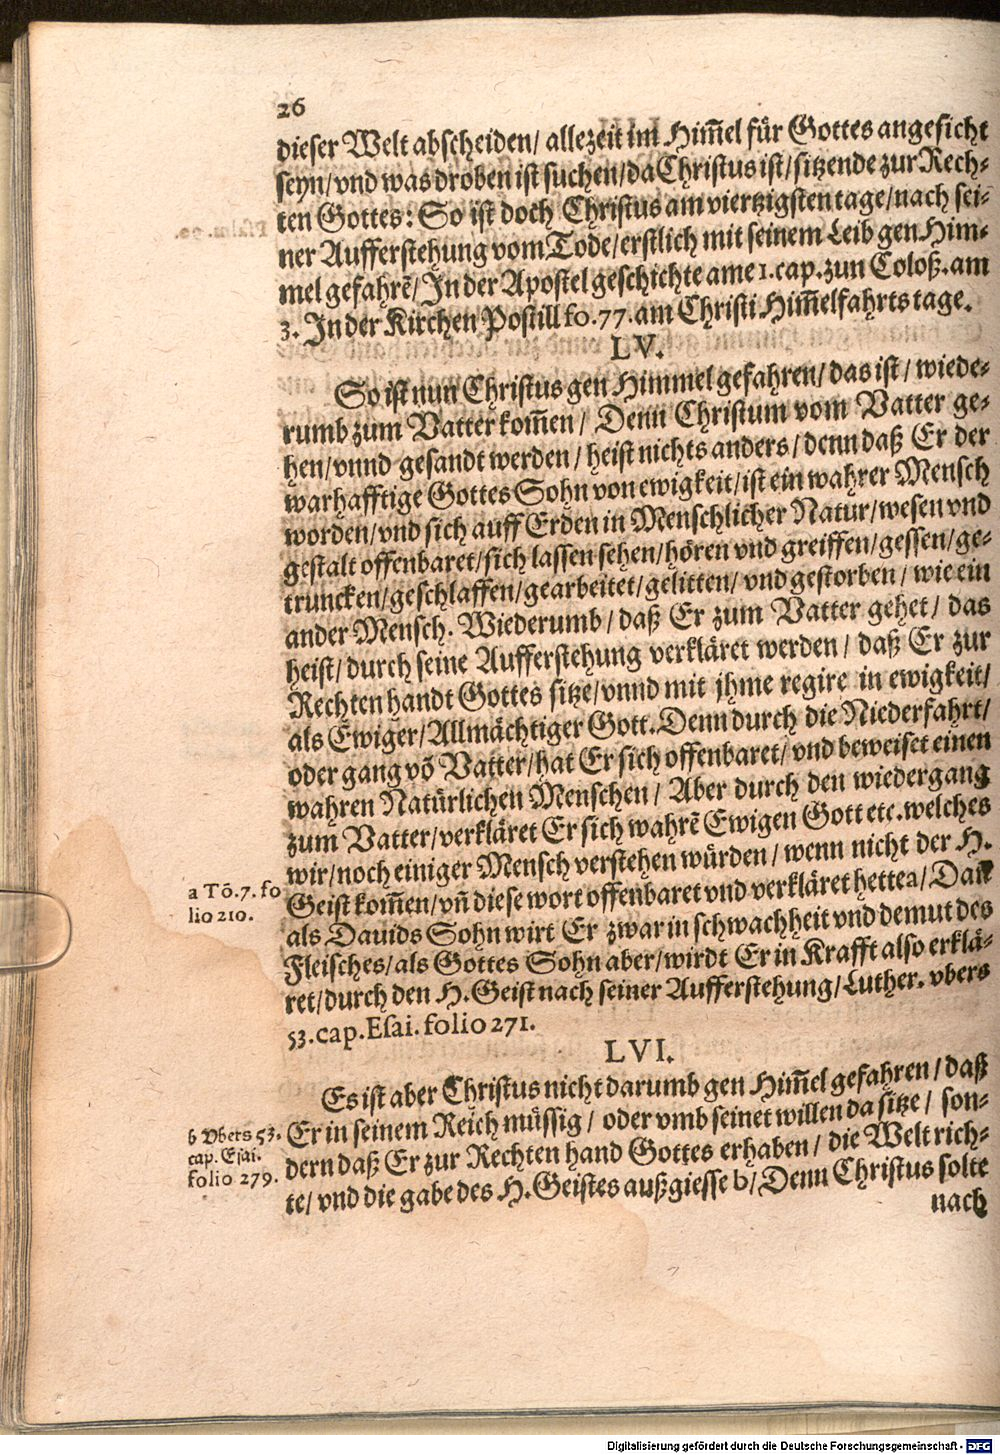 26
dieser Welt abscheiden/ allezeit im Him̃el für Gottes angesicht
seyn/ vnd was droben ist suchen/ da Christus ist/ sitzende zur Rech-
ten Gottes: So ist doch Christus am viertzigsten tage/ nach sei-
ner Aufferstehung vom Tode/ erstlich mit seinem Leib gen Him-
mel gefahrẽ/ In der Apostel geschichte ame 1. cap. zun Coloß. am
3. In der Kirchen Postill fo. 77. am Christi Him̃elfahrts tage.
LV.
So ist nun Christus gen Himmel gefahren/ das ist/ wiede-
rumb zum Vatter kom̃en/ Denn Christum vom Vatter ge-
hen/ vnnd gesandt werden/ heist nichts anders/ denn daß Er der
warhafftige Gottes Sohn von ewigkeit/ ist ein wahrer Mensch
worden/ vnd sich auff Erden in Menschlicher Natur/ wesen vnd
gestalt offenbaret/ sich lassen sehen/ hören vnd greiffen/ gessen/ ge-
truncken/ geschlaffen/ gearbeitet/ gelitten/ vnd gestorben/ wie ein
ander Mensch. Wiederumb/ daß Er zum Vatter gehet/ das
heist/ durch seine Aufferstehung verkläret werden/ daß Er zur
Rechten handt Gottes sitze/ vnnd mit jhme regire in ewigkeit/
als Ewiger/ Allmächtiger Gott. Denn durch die Niederfahrt/
oder gang võ Vatter/ hat Er sich offenbaret/ vnd beweiset einen
wahren Natürlichen Menschen/ Aber durch den wiedergang
zum Vatter/ verkläret Er sich wahrẽ Ewigen Gott etc. welches
wir/ noch einiger Mensch verstehen würden/ wenn nicht der H.
Geist kom̃en/ vñ diese wort offenbaret vnd verkläret hette a/ Dañ
als Dauids Sohn wirt Er zwar in schwachheit vnd demut des
Fleisches/ als Gottes Sohn aber/ wirdt Er in Krafft also erklä-
ret/ durch den H. Geist nach seiner Aufferstehung/ Luther. vbers
53. cap. Esai. folio 271.
a Tõ. 7. fo
lio 210.
LVI.
Es ist aber Christus nicht darumb gen Him̃el gefahren/ daß
Er in seinem Reich müssig/ oder vmb seinet willen da sitze/ son-
dern daß Er zur Rechten hand Gottes erhaben/ die Welt rich-
te/ vnd die gabe des H. Geistes außgiesse b/ Denn Christus solte
b vbers 53.
cap. Esai.
folio 279.
nach
Digitalisierung gefördert durch die Deutsche Forschungsgemeinschaft - DFG